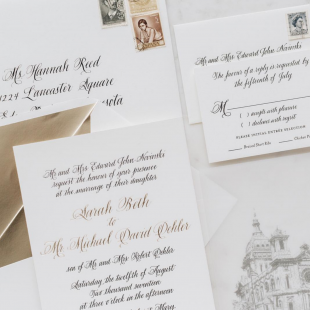 Ms Hannah Reed
11229 Lancaster Square
Mr and Mrs Edward John
The favour of a reply is requested by
the fifteenth of July
M
( ) accepts with pleasure
( ) declines with regret
PLEASE INITIAL ENTRÉE SELECTION
Mr and Mrs Edward John
request the honour of your presence
at the marriage of their daughter
Sarah Beth
to
Mr Michael David Oehler
son of Mr and Mrs Robert Oehler
Saturday the twelfth of August
Two thousand seventeen
at three o'clock in the afternoon